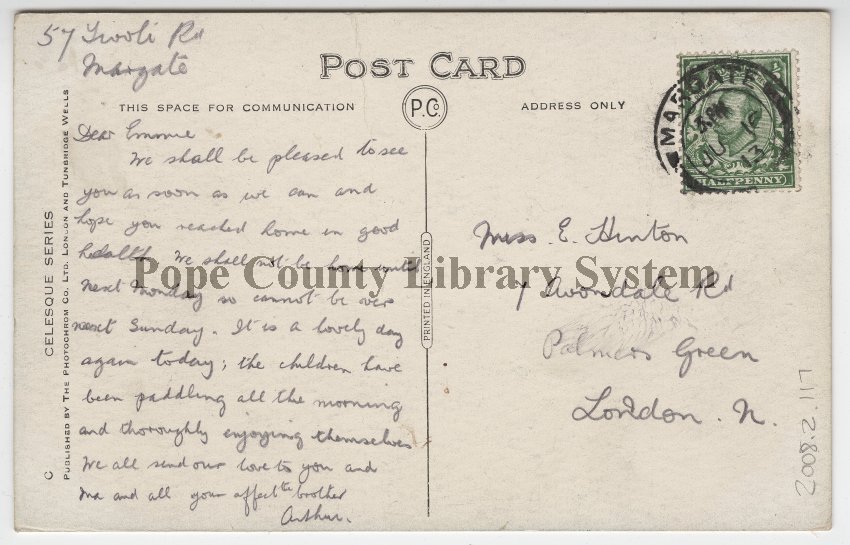 57 Tivoli Rd
Margate
POST CARD
THIS SPACE FOR COMMUNICATION
P.Co.
ADDRESS ONLY
MARGATE
JU 14
13
HALFPENNY
Dear Emmie
We shall be pleased to see
you as soon as we can and
hope you reached home in good
health. We shall not be home until
next Monday so cannot be over
next Sunday. It is a lovely day
again today; the children have
been paddling all the morning
and thoroughly enjoying themselves
We all send our love to you and
Ma and all your affecte brother
Arthur.
Miss. E. Hinton
7 Avondale Rd
Palmers Green
London. N.
Pope County Library System
CELESQUE SERIES
C PUBLISHED BY THE PHOTOCHROM CO. LTD. LONDON AND TUNBRIDGE WELLS
PRINTED IN ENGLAND
L11.2.8002